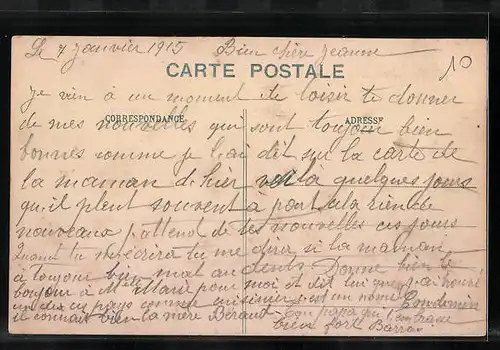 Le 7 Janvier 1915 Bien chère Jeanne
10
CARTE POSTALE
Je vien à un moment de loisir te donner
CORRESPONDANCE ADRESSE
de mes nouvelles qui sont toujour bien
bonnes comme je l'ai dit sur la carte de
la maman d'hier voilà quelques jours
qu'il pleut souvent a part cela rien de
nouveaux j'attend de tes nouvelles ces jours
Quant tu m'écrira tu me dira si la maman
a toujour bien mal au dents Donne bien le
bonjour à Mlle Marie pour moi et dit lui que j'ai trouvé
un de ces pays comme cuisinier c'est un nomé
il connait bien la mère Béraud Ton papa qui t'embrasse
bien fort Barra